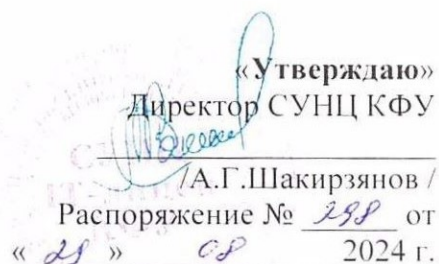 «Утверждаю»
Директор СУНЦ КФУ
/А.Г.Шакирзянов /
Распоряжение № 298 от
« » 08 2024 г.